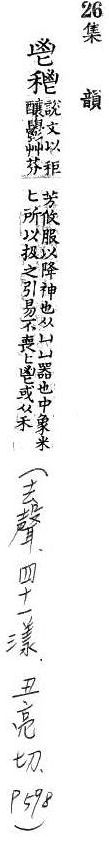 26
集韻
鬯𩰪 說文以秬釀鬱艸芬
芳攸服以降神也从凵凵器也中象米
匕所以扱之引易不喪匕鬯或从禾
(去聲．四十一漾．丑亮切．P598)